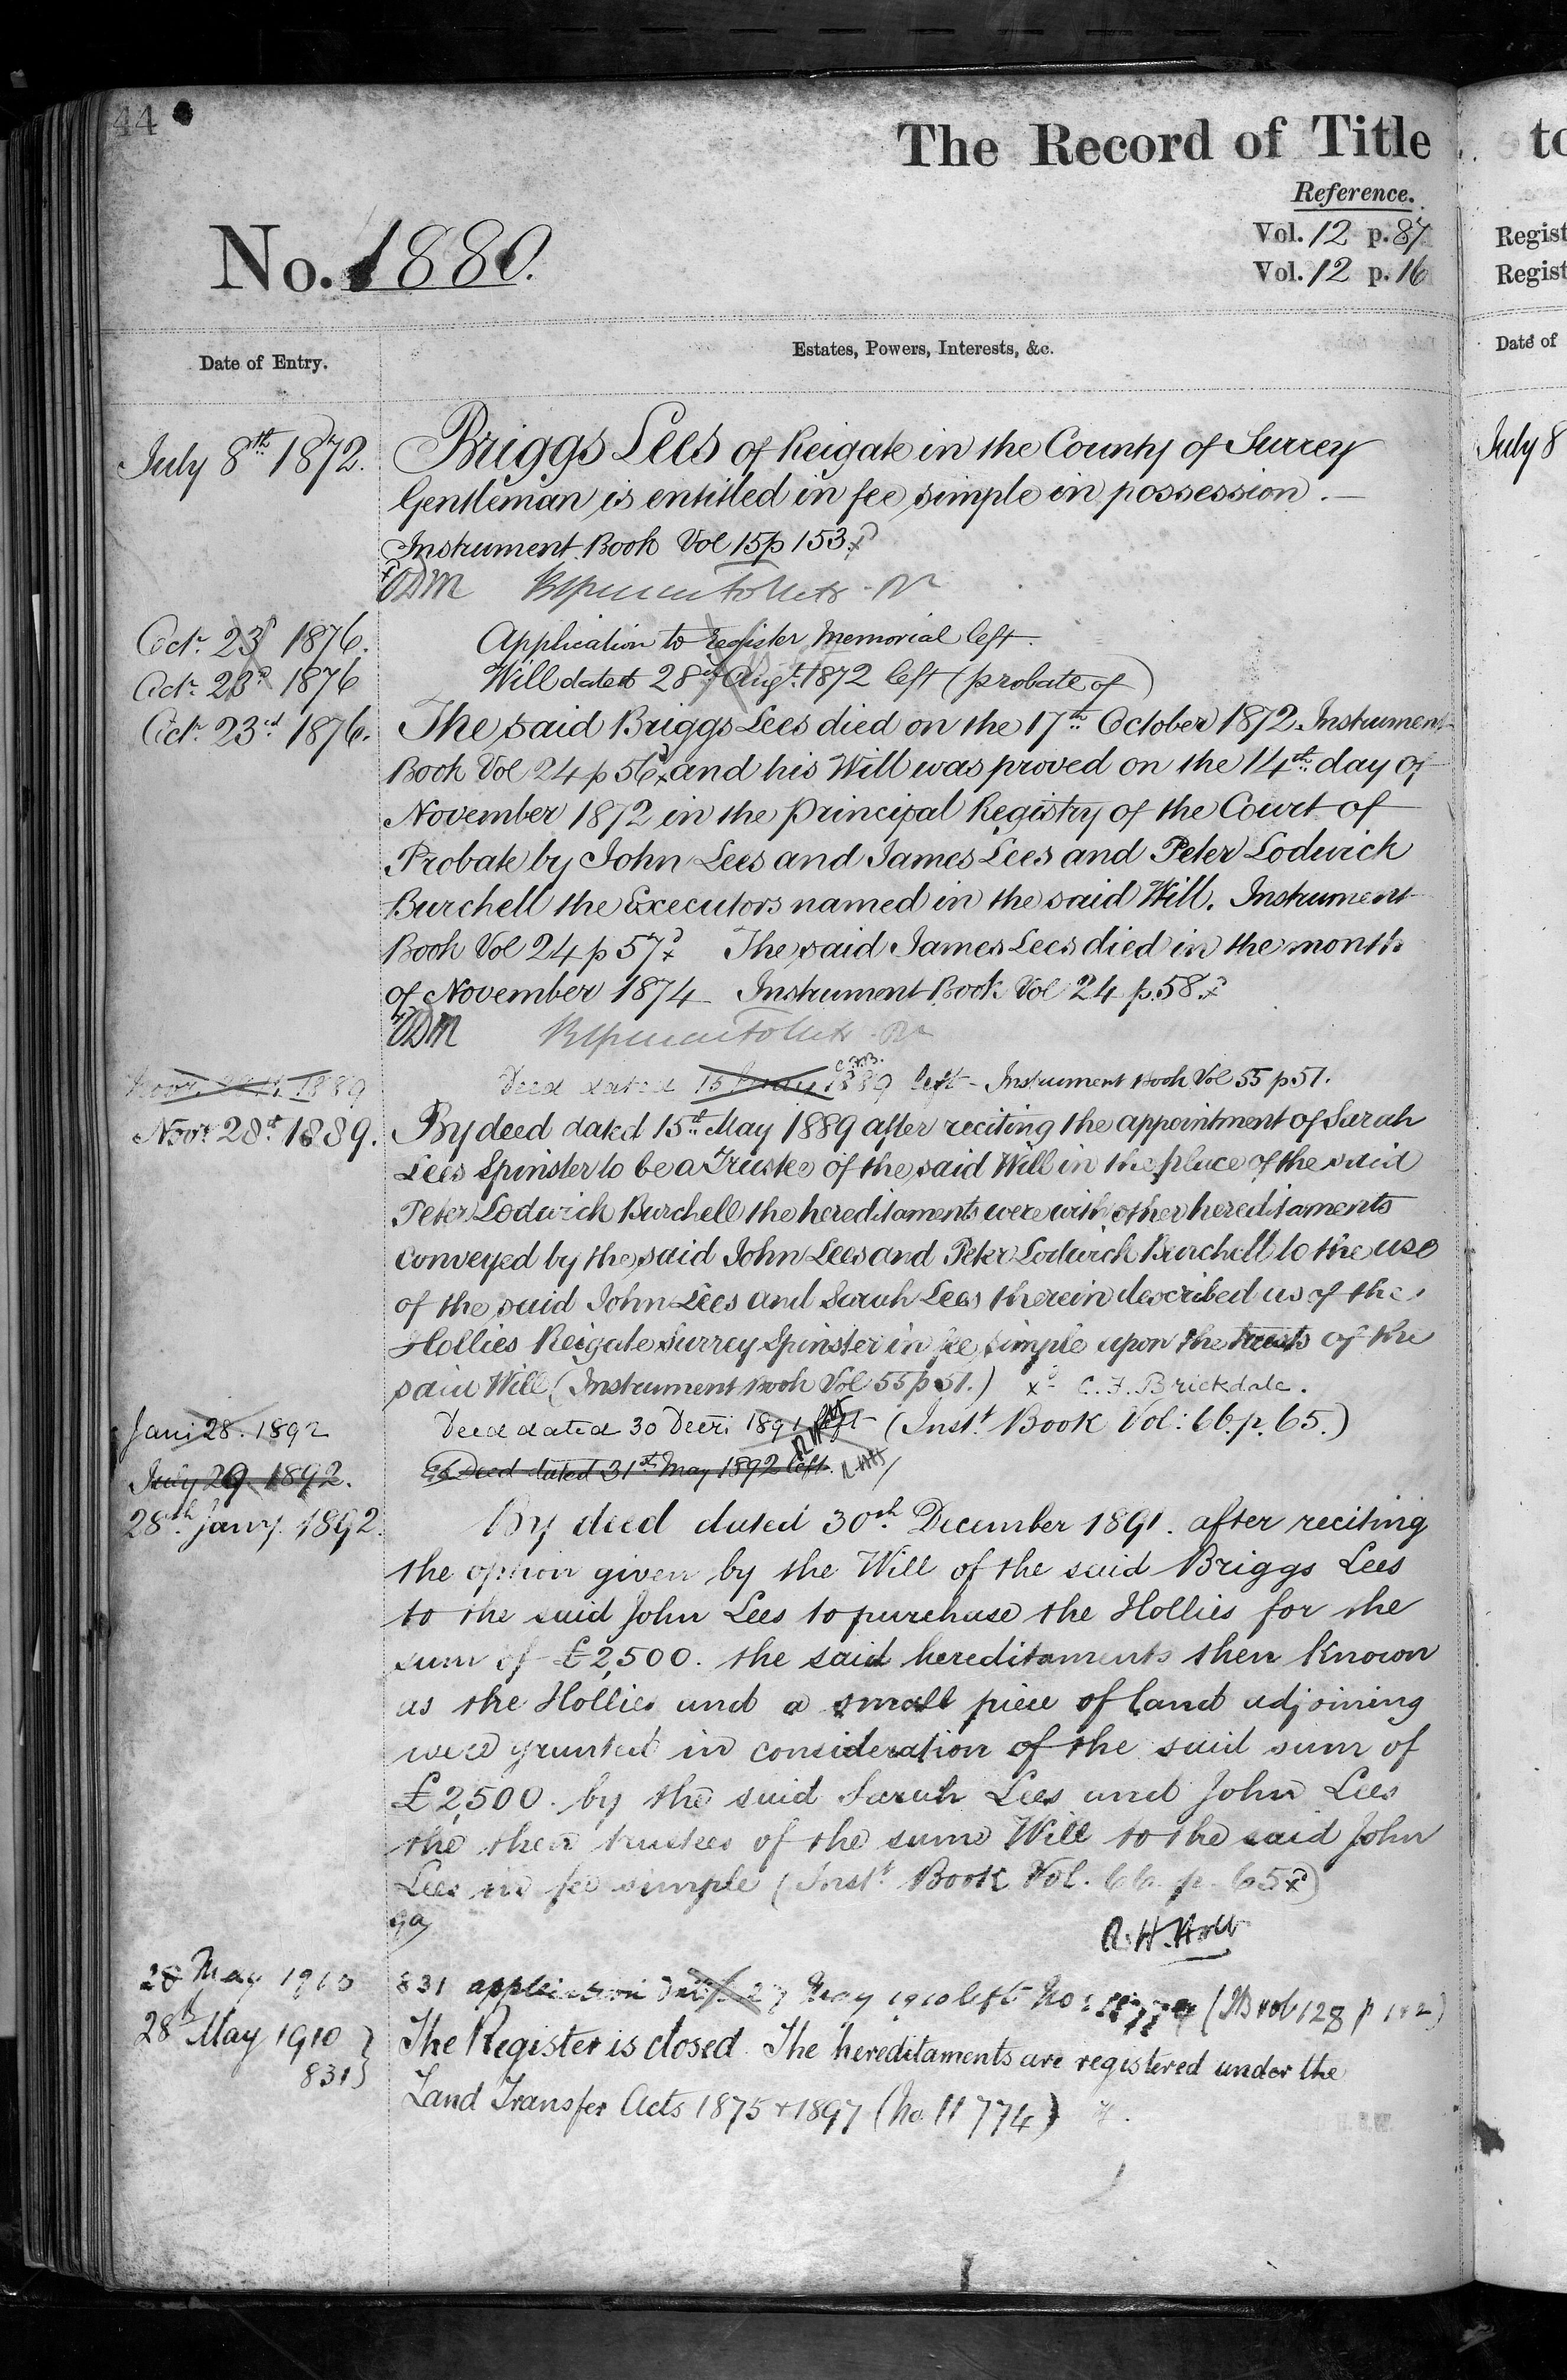 44
The Record of Title
to
Reference.
No. 1880.
Vol. 12 p. 87
Vol. 12 p. 16
Regist
Regist
Date of Entry.
Estates, Powers, Interests, &c.
Date of
July 8th 1872.
Briggs Lees of Reigate in the County of Surrey
July 8
Gentleman is entitled in fee simple in possession.
Instrument Book Vol 15 p 153 xd
Octr. 23d 1876.
Application to register Memorial left.
Octr. 23d 1876
Will dated 28th Augt. 1872 left (probate of)
Octr. 23rd 1876.
The said Briggs Lees died on the 17th October 1872 Instrument
Book Vol 24 p 56 xd and his Will was proved on the 14th day of
November 1872 in the Principal Registry of the Court of
Probate by John Lees and James Lees and Peter Lodwick
Burchell the Executors named in the said Will. Instrument
Book Vol 24 p 57 xd The said James Lees died in the month
of November 1874 Instrument Book Vol 24 p. 58 xd
C.F.B.
Novr. 28th 1889
Deed dated 15th May 1889 left - Instrument Book Vol 55 p 51.
Novr. 28th 1889.
By deed dated 15th May 1889 after reciting the appointment of Sarah
Lees Spinster to be a Trustee of the said Will in the place of the said
Peter Lodwick Burchell the hereditaments were with other hereditaments
conveyed by the said John Lees and Peter Lodwick Burchell to the use
of the said John Lees and Sarah Lees therein described as of the
Hollies Reigate Surrey Spinster in fee simple upon the trusts of the
said Will (Instrument Book Vol 55 p 51.) xd C. F. Brickdale.
Jan: 28. 1892
Deed dated 30 Decr: 1891 left (Inst. Book Vol: 66. p. 65.)
July 29 1892.
Deed dated 31st May 1892 left.
28th Jany. 1892.
By deed dated 30th December 1891. after reciting
the option given by the Will of the said Briggs Lees
to the said John Lees to purchase the Hollies for the
sum of £2,500. the said hereditaments then known
as the Hollies and a small piece of land adjoining
were granted in consideration of the said sum of
£2,500. by the said Sarah Lees and John Lees
the then trustees of the same Will to the said John
Lees in fee simple (Inst. Book Vol. 66. p. 65 xd)
R. H. Holt
28 May 1910
831 application dated 27 May 1910 left No: 11774 (IB vol 128 p 142)
28th May 1910
The Register is closed. The hereditaments are registered under the
831
Land Transfer Acts 1875 & 1897 (No. 11774)